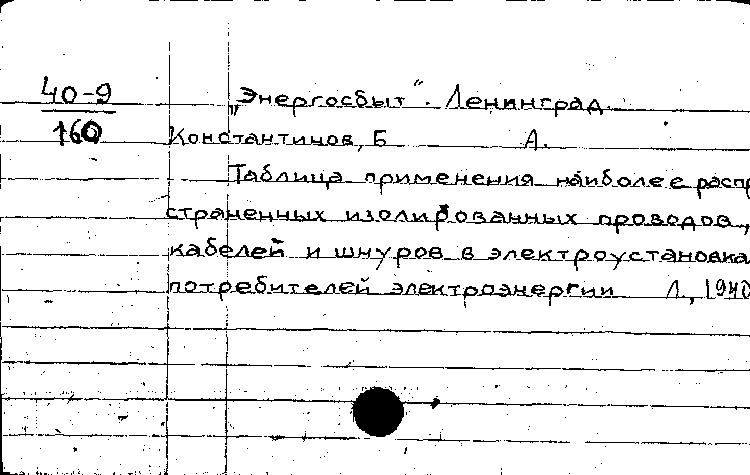 40-9
160
„Энергосбыт“. Ленинград.
Константинов, Б А.
Таблица применения наиболее распр
страненных изолированных проводов,
кабелей и шнуров в электроустановка
потребителей электроэнергии Л., 1940